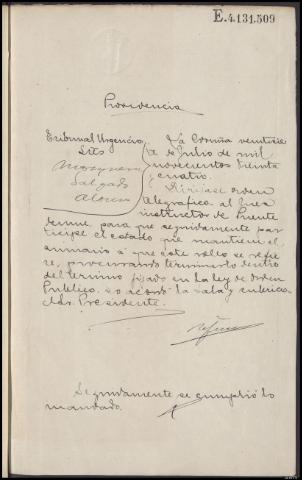 E.4.131.509
Providencia
Tribunal Urgencia
Sres
Salgado
La Coruña veintisiete
de Julio de mil
novecientos treinta
y cuatro.
Diríjase orden
telegráfica al Juez
instructor de Puente
deume, para que seguidamente par
ticipe el estado que mantiene el
sumario a que este rollo se refie
re, procurando terminarlo dentro
del término fijado en la Ley de Orden
Público. Lo acordó la Sala y rubrica
el Sr. Presidente.
Seguidamente se cumplió lo
mandado.